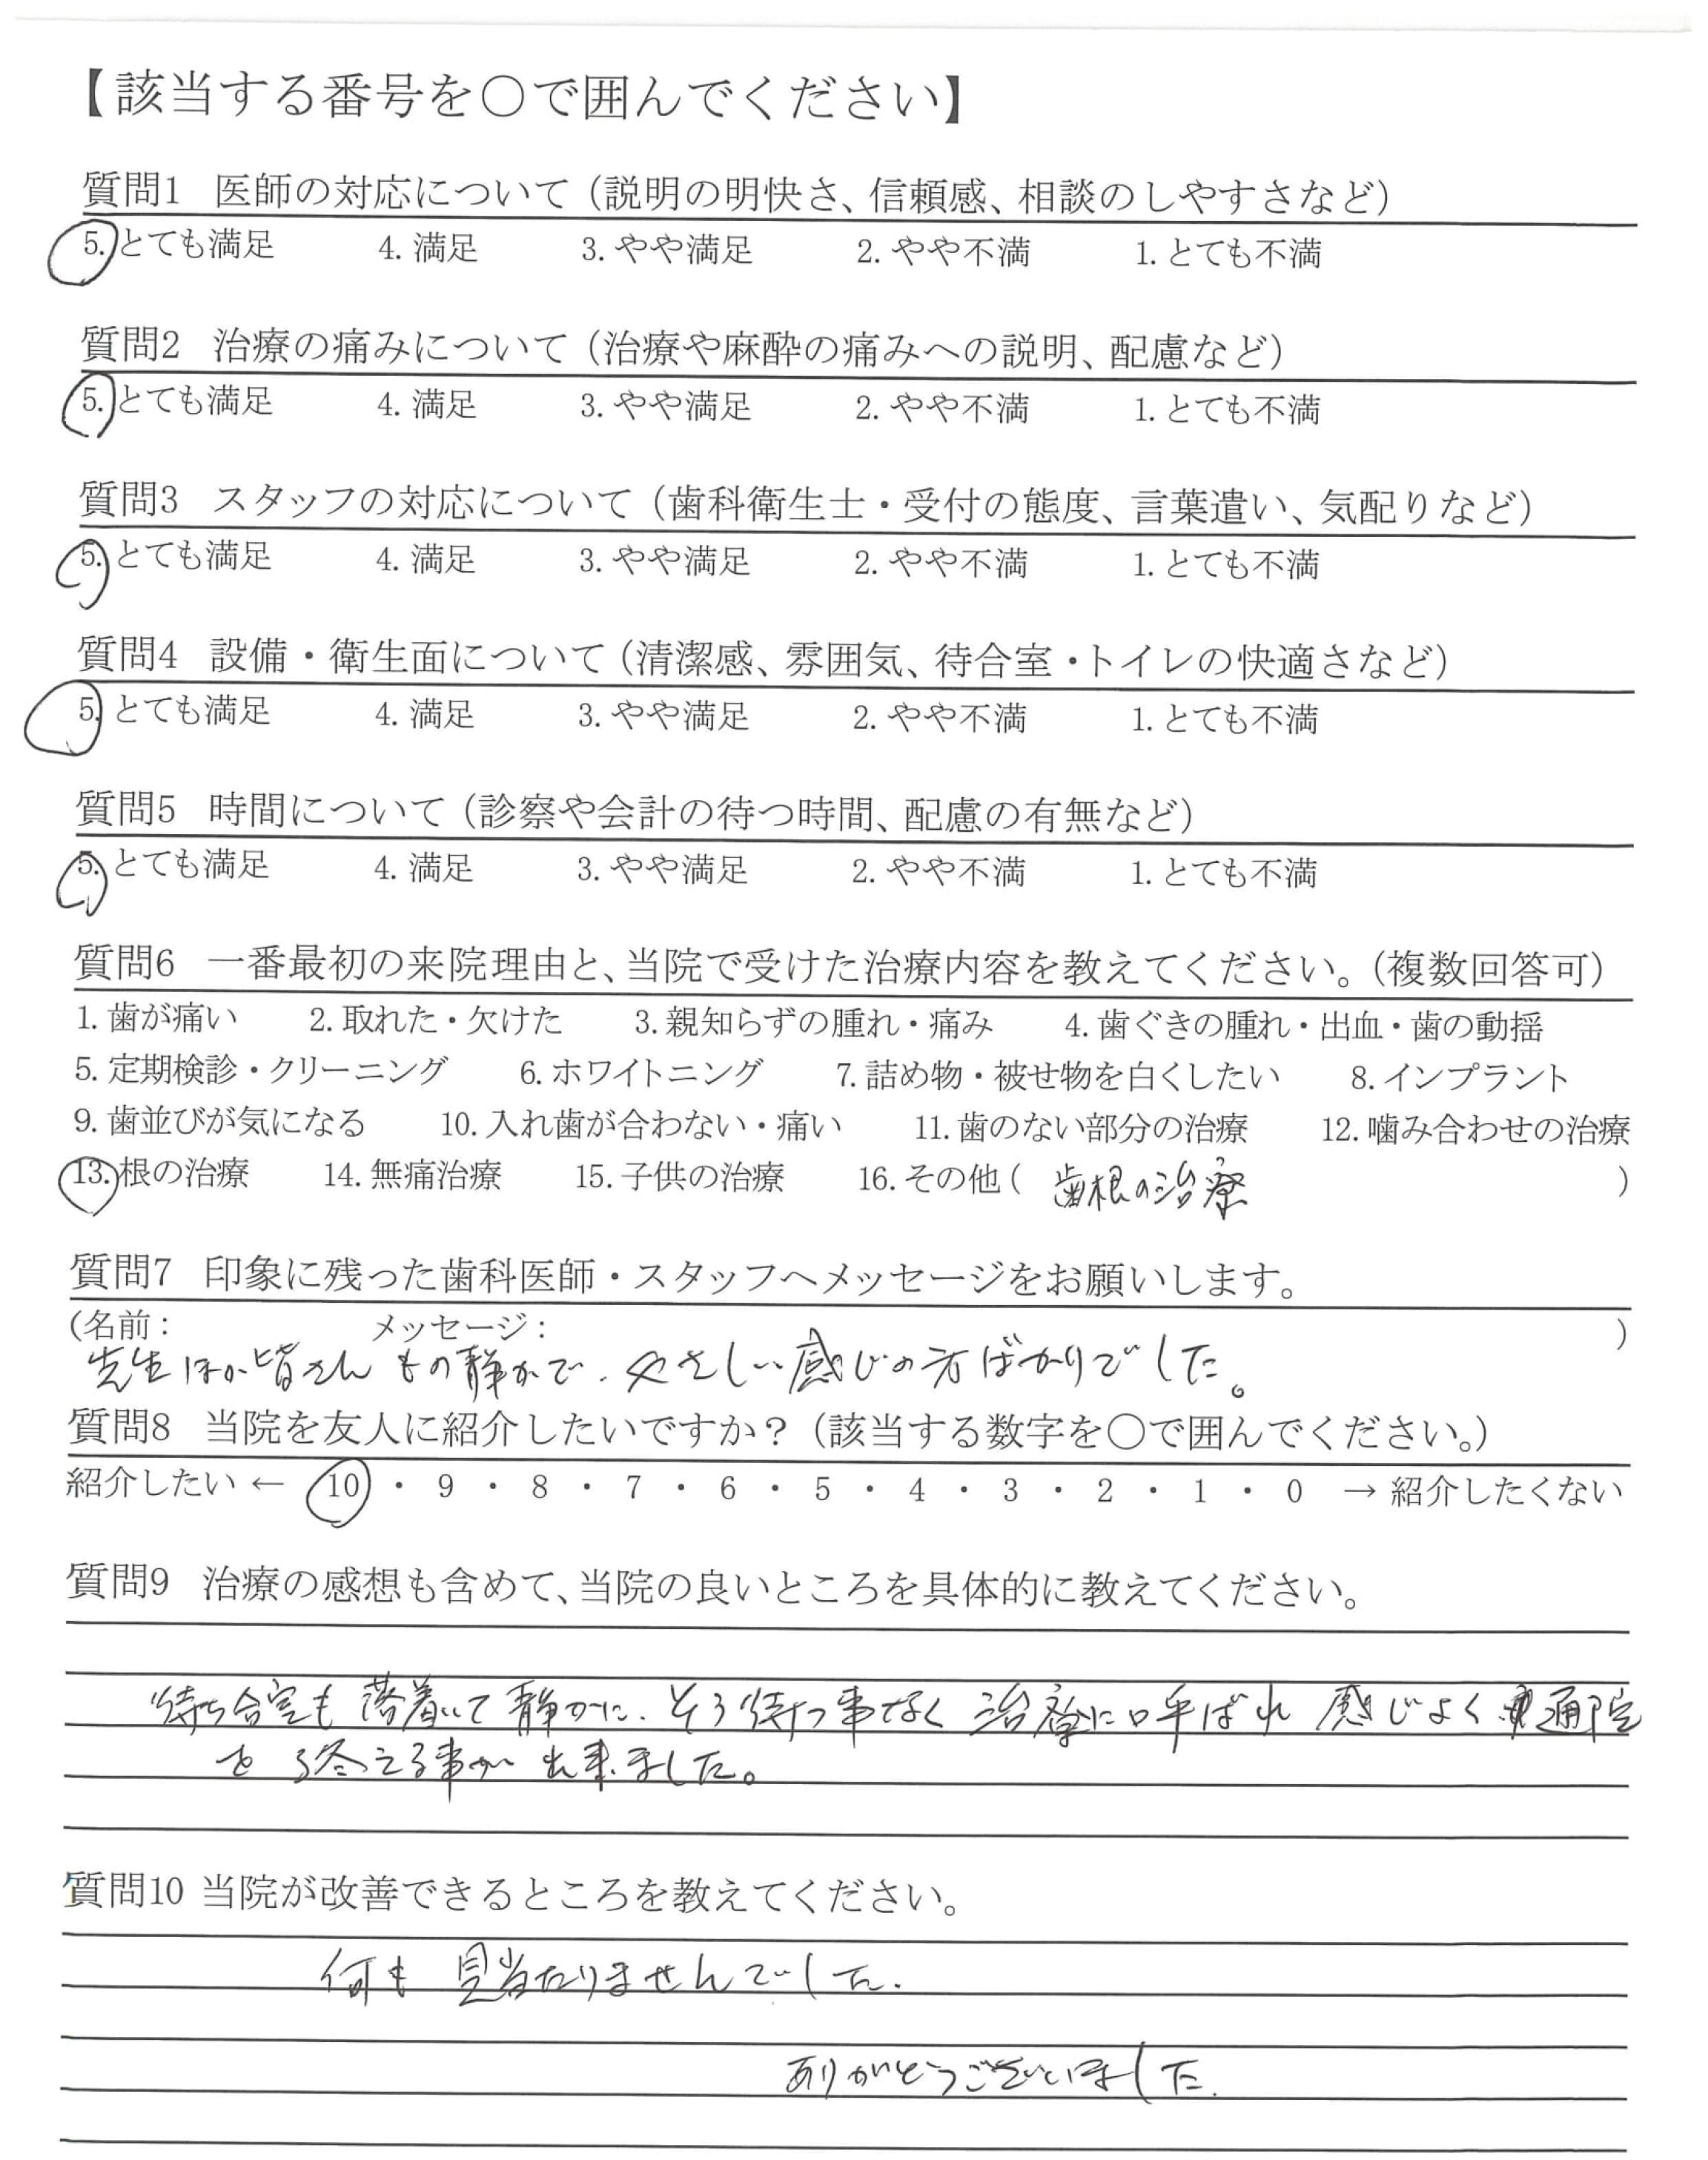 【該当する番号を〇で囲んでください】
質問1 医師の対応について（説明の明快さ、信頼感、相談のしやすさなど）
5. とても満足 4. 満足 3. やや満足 2. やや不満 1. とても不満
質問2 治療の痛みについて（治療や麻酔の痛みへの説明、配慮など）
5. とても満足 4. 満足 3. やや満足 2. やや不満 1. とても不満
質問3 スタッフの対応について（歯科衛生士・受付の態度、言葉遣い、気配りなど）
5. とても満足 4. 満足 3. やや満足 2. やや不満 1. とても不満
質問4 設備・衛生面について（清潔感、雰囲気、待合室・トイレの快適さなど）
5. とても満足 4. 満足 3. やや満足 2. やや不満 1. とても不満
質問5 時間について（診察や会計の待つ時間、配慮の有無など）
5. とても満足 4. 満足 3. やや満足 2. やや不満 1. とても不満
質問6 一番最初の来院理由と、当院で受けた治療内容を教えてください。（複数回答可）
1. 歯が痛い 2. 取れた・欠けた 3. 親知らずの腫れ・痛み 4. 歯ぐきの腫れ・出血・歯の動揺
5. 定期検診・クリーニング 6. ホワイトニング 7. 詰め物・被せ物を白くしたい 8. インプラント
9. 歯並びが気になる 10. 入れ歯が合わない・痛い 11. 歯のない部分の治療 12. 噛み合わせの治療
13. 根の治療 14. 無痛治療 15. 子供の治療 16. その他（ 歯根の治療 ）
質問7 印象に残った歯科医師・スタッフへメッセージをお願いします。
（名前： メッセージ： ）
先生ほか皆さん もの静かで、やさしい感じの方ばかりでした。
質問8 当院を友人に紹介したいですか？（該当する数字を〇で囲んでください。）
紹介したい ← 10 ・ 9 ・ 8 ・ 7 ・ 6 ・ 5 ・ 4 ・ 3 ・ 2 ・ 1 ・ 0 → 紹介したくない
質問9 治療の感想も含めて、当院の良いところを具体的に教えてください。
待ち合室も落着いて静かに、そう待つ事なく 治療に呼ばれ 感じよく 通院
を終える事が 出来ました。
質問10 当院が改善できるところを教えてください。
何も 見当たりませんでした.
ありがとうございました.